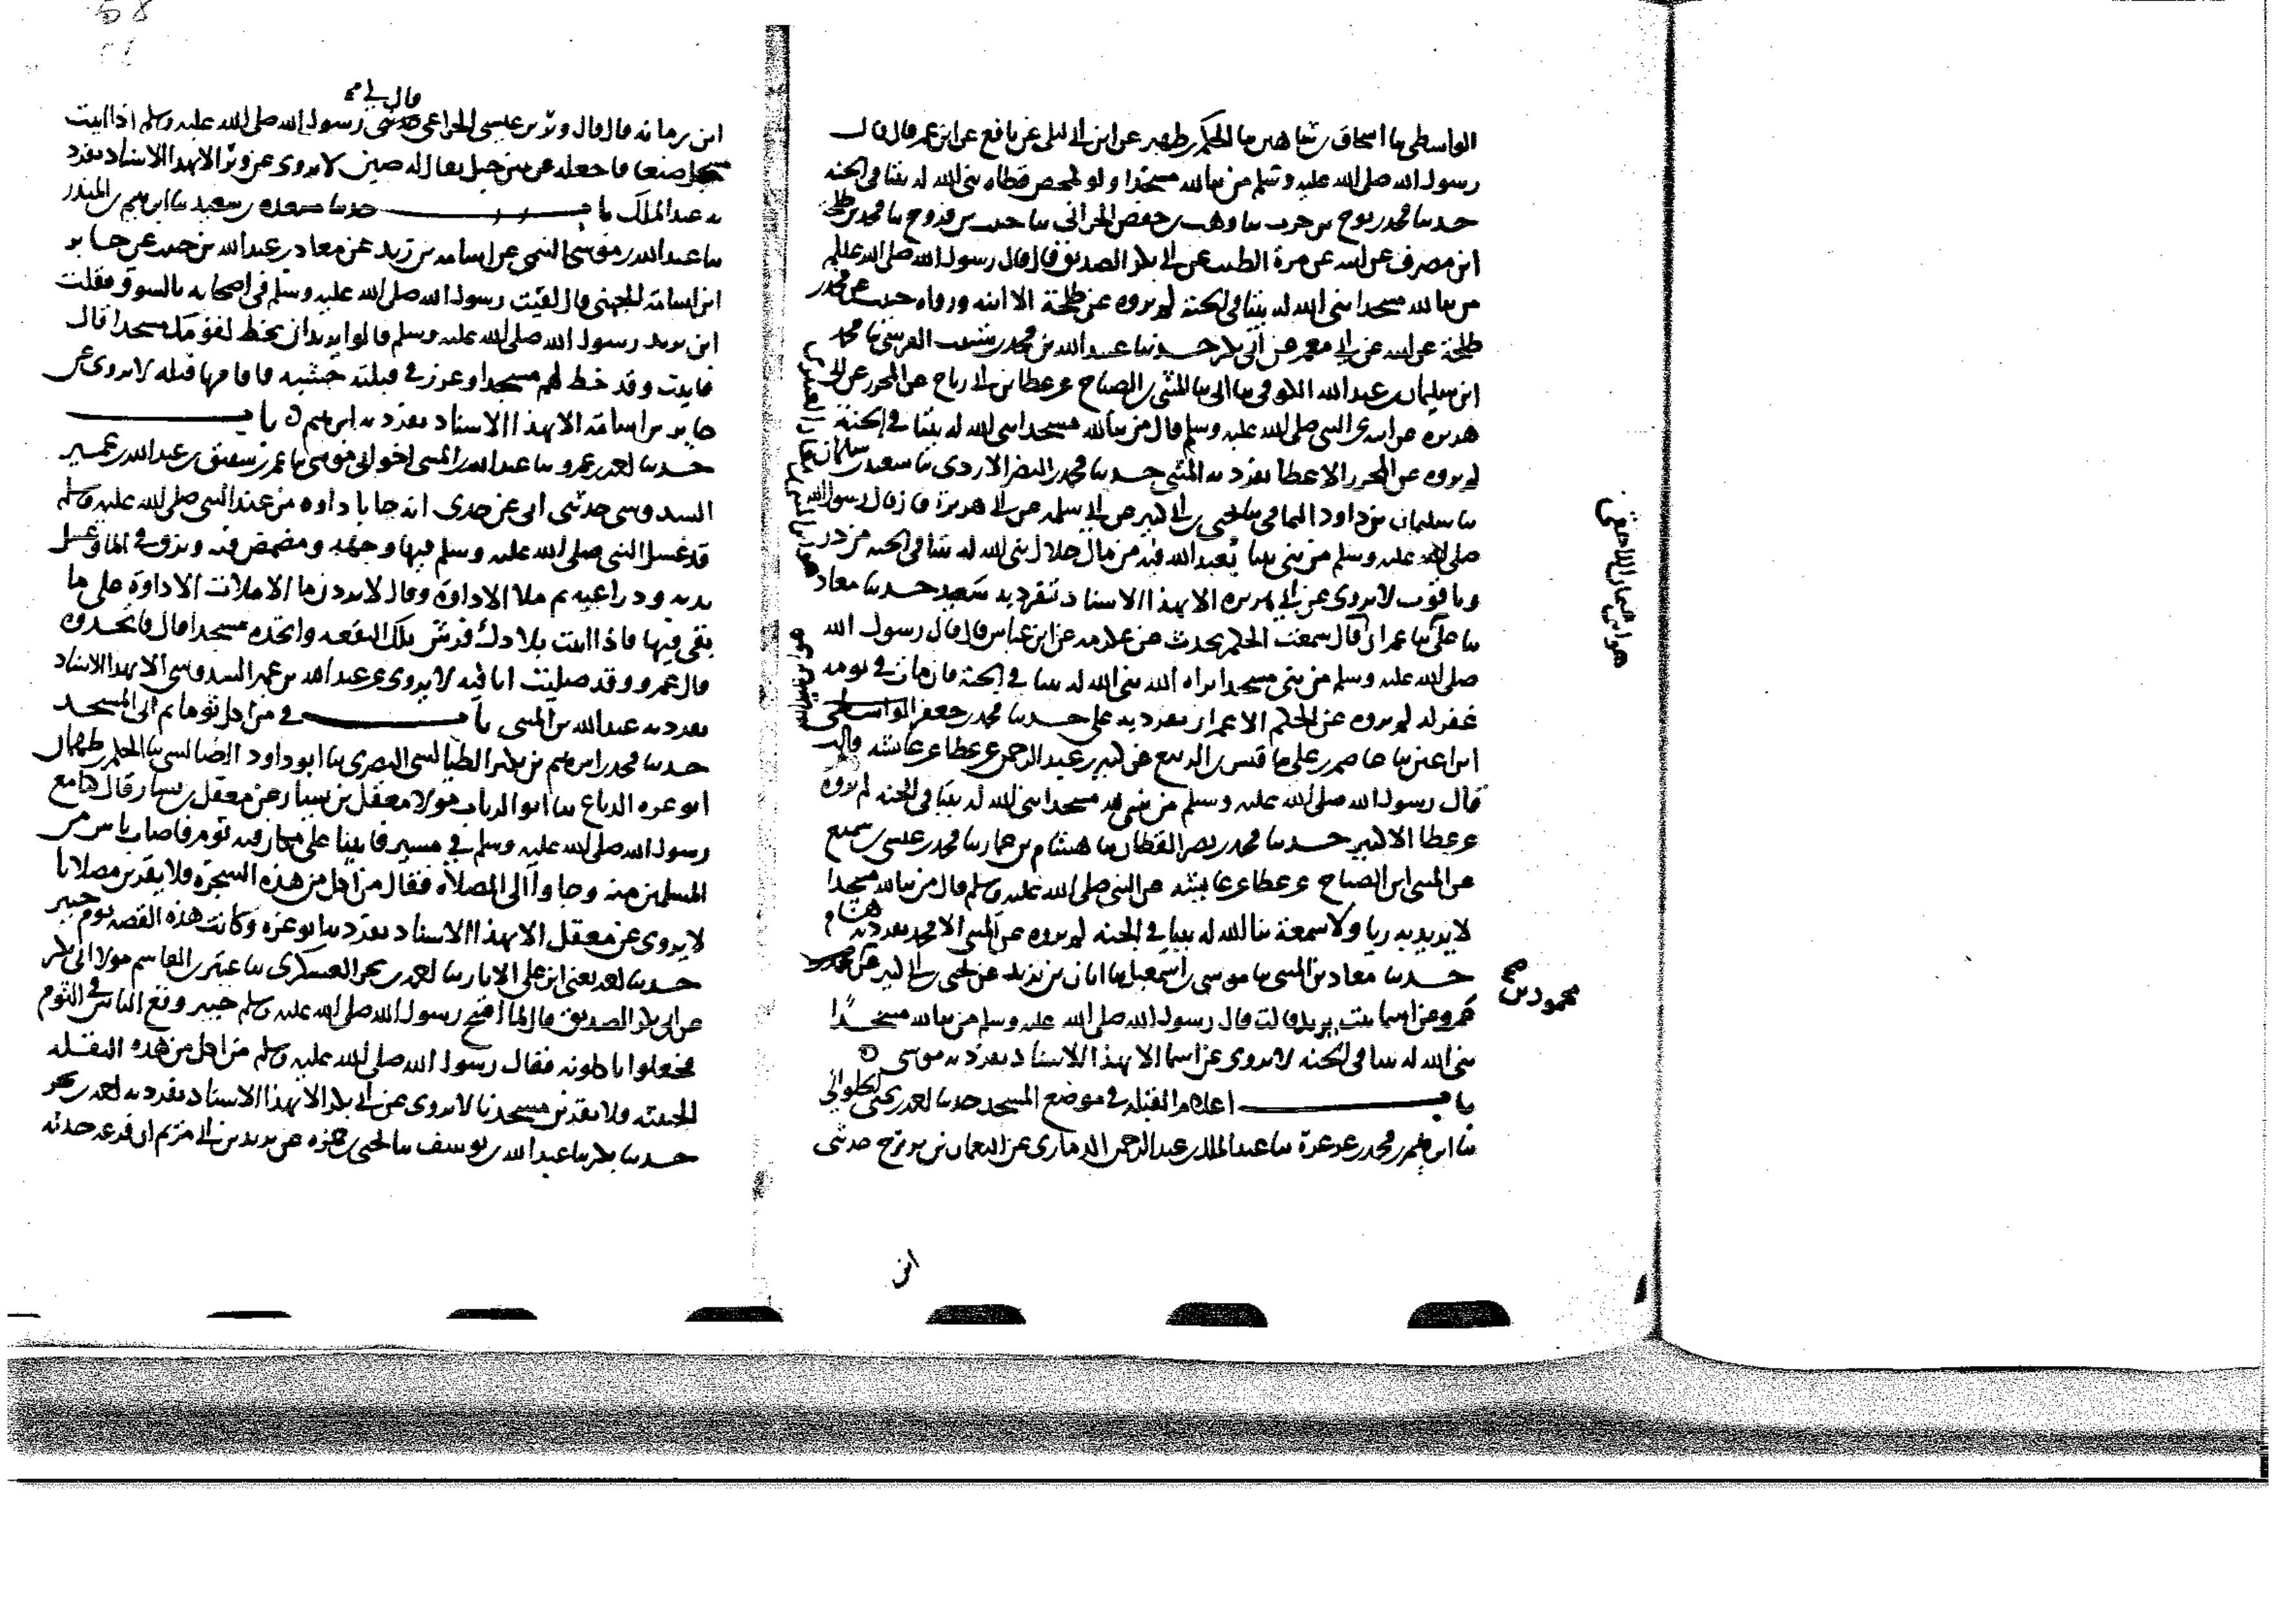 الواسطي نا اسحاق بن شاهين نا الحكم بن ظهير عن ابن ابي ليلى عن نافع عن ابن عمر قال قال
رسول الله صلى الله عليه وسلم من بنا لله مسجدا ولو كمفحص قطاه بنى الله له بيتا في الجنه
حدثنا محمد بن نوح بن حرب نا وهب بن حفص الحراني نا حبيب بن فروخ نا محمد بن طلحة
ابن مصرف عن ابيه عن مرة الطيب عن ابي بكر الصديق قال قال رسول الله صلى الله عليه
من بنا لله مسجدا بنى الله له بيتا في الجنة لم يروه عن طلحة الا ابنه ورواه حبيب عن محمد بن
طلحة عن ابيه عن ابي معمر عن ابي بكر حدثنا عبد الله بن محمد بن شعيب نا محمد
ابن سليمان بن عبد الله الكوفي نا ابي نا المثنى بن الصباح عن عطا بن ابي رباح عن المحرر عن ابي
هريره عن النبي صلى الله عليه وسلم قال من بنا لله مسجدا بنى الله له بيتا في الجنة
لم يروه عن المحرر الا عطا تفرد به المثنى حدثنا محمد بن النضر الازدي نا سعيد بن سليمان
نا سليمان بن داود اليمامي نا يحيى بن ابي كثير عن ابي سلمه عن ابي هريرة قال قال رسول الله
صلى الله عليه وسلم من بنى بيتا يعبد الله فيه من مال حلال بنى الله له بيتا في الجنه من در
وياقوت لا يروى عن ابي هريره الا بهذا الاسناد تفرد به سعيد حدثنا معاذ
نا علي نا عمران قال سمعت الحكم يحدث عن عكرمه عن ابن عباس قال قال رسول الله
صلى الله عليه وسلم من بنى مسجدا يراه الله بنى الله له بيتا في الجنة فان مات في يومه
غفر له لم يروه عن الحكم الا عمران تفرد به علي حدثنا محمد بن جعفر الواسطي
ابن اعين نا عاصم بن علي نا قيس بن الربيع عن كثير بن عبد الرحمن عن عطا عن عائشه قالت
قال رسول الله صلى الله عليه وسلم من بنى لله مسجدا بنى الله له بيتا في الجنه لم يروه
عن عطا الا كثير حدثنا محمد بن نصر القطان نا هشام بن عمار نا محمد بن عيسى بن سميع
عن المثنى ابن الصباح عن عطا عن عايشه عن النبي صلى الله عليه وسلم قال من بنا لله مسجدا
لا يريد به ريا ولا سمعة بنا الله له بيتا في الجنه لم يروه عن المثنى الا محمد تفرد به هشام
حدثنا معاذ بن المثنى نا موسى بن اسمعيل نا ابان بن يزيد عن يحيى بن ابي كثير عن
محمود بن
عمرو عن اسما بنت يزيد قالت قال رسول الله صلى الله عليه وسلم من بنا لله مسجدا
بنى الله له بيتا في الجنه لا يروى عن اسما الا بهذا الاسناد تفرد به موسى
باب اعلام القبله في موضع المسجد حدثنا احمد بن يحيى الحلواني
نا ابراهيم بن محمد بن عرعرة نا عبد الملك بن عبد الرحمن الذماري عن النعمان بن بزرج حدثني
ابن
قال لي
ابن رمانه قال قال وبر بن عيسى الخزاعي رسول الله صلى الله عليه وسلم اذا اتيت
مسجد صنعا فاجعله عن يمين جبل يقال له ضين لا يروى عن وبر الا بهذا الاسناد تفرد
به عبد الملك باب حدثنا مسعده بن سعيد نا ابراهيم بن المنذر
نا عبد الله بن موسى التيمي عن اسامه بن زيد عن معاذ بن عبد الله بن خبيب عن جابر
ابن اسامة الجهني قال لقيت رسول الله صلى الله عليه وسلم في اصحابه بالسوق فقلت
اين يريد رسول الله صلى الله عليه وسلم قالوا يريد ان يخط لقومك مسجدا قال
فاتيت وقد خط لهم مسجدا وغرز في قبلته خشبه فاقامها قبله لا يروى عن
جابر بن اسامة الا بهذا الاسناد تفرد به ابراهيم باب
حدثنا احمد بن عمرو نا عبد الله بن المثنى اخو ابي موسى نا عمر بن شقيق بن عبد الله بن عمير
السدوسي حدثني ابي عن جدي انه جا باداوه من عند النبي صلى الله عليه وسلم
قد غسل النبي صلى الله عليه وسلم فيها وجهه ومضمض فيه وبزق في الما وغسل
يديه وذراعيه ثم ملا الاداوة وقال لا تردن ما الا ملات الاداوة على ما
بقي فيها فاذا اتيت بلادك فرش تلك البقعه واتخذه مسجدا قال فاتخذوه
قال عمرو وقد صليت انا فيه لا يروى عن عبد الله بن عمير السدوسي الا بهذا الاسناد
تفرد به عبد الله بن المثنى باب في من اكل ثوما ثم اتى المسجد
حدثنا محمد بن ابراهيم بن بكير الطيالسي البصري نا ابو داود الطيالسي نا الحكم بن طهمان
ابو عزه الدباغ نا ابو الرباب مولا معقل بن يسار عن معقل بن يسار قال كنا مع
رسول الله صلى الله عليه وسلم في مسير فاتينا على مكان فيه ثوم فاصاب ناس من
المسلمين منه وجاوا الى المصلاه فقال من اكل من هذه الشجرة فلا يقربن مصلانا
لا يروى عن معقل الا بهذا الاسناد تفرد به ابو عزه وكانت هذه القصه يوم خيبر
حدثنا احمد يعني ابن علي الابار نا احمد بن بحر العسكري نا عبثر بن القاسم مولا ابي بكر
عن ابي بكر الصديق قال لما افتتح رسول الله صلى الله عليه وسلم خيبر وقع الناس في الثوم
فجعلوا ياكلونه فقال رسول الله صلى الله عليه وسلم من اكل من هذه البقله
الخبيثه فلا يقربن مسجدنا لا يروى عن ابي بكر الا بهذا الاسناد تفرد به احمد بن بحر
حدثنا بكر نا عبد الله بن يوسف نا يحيى بن حمزه عن يزيد بن ابي مريم ان قزعه حدثه